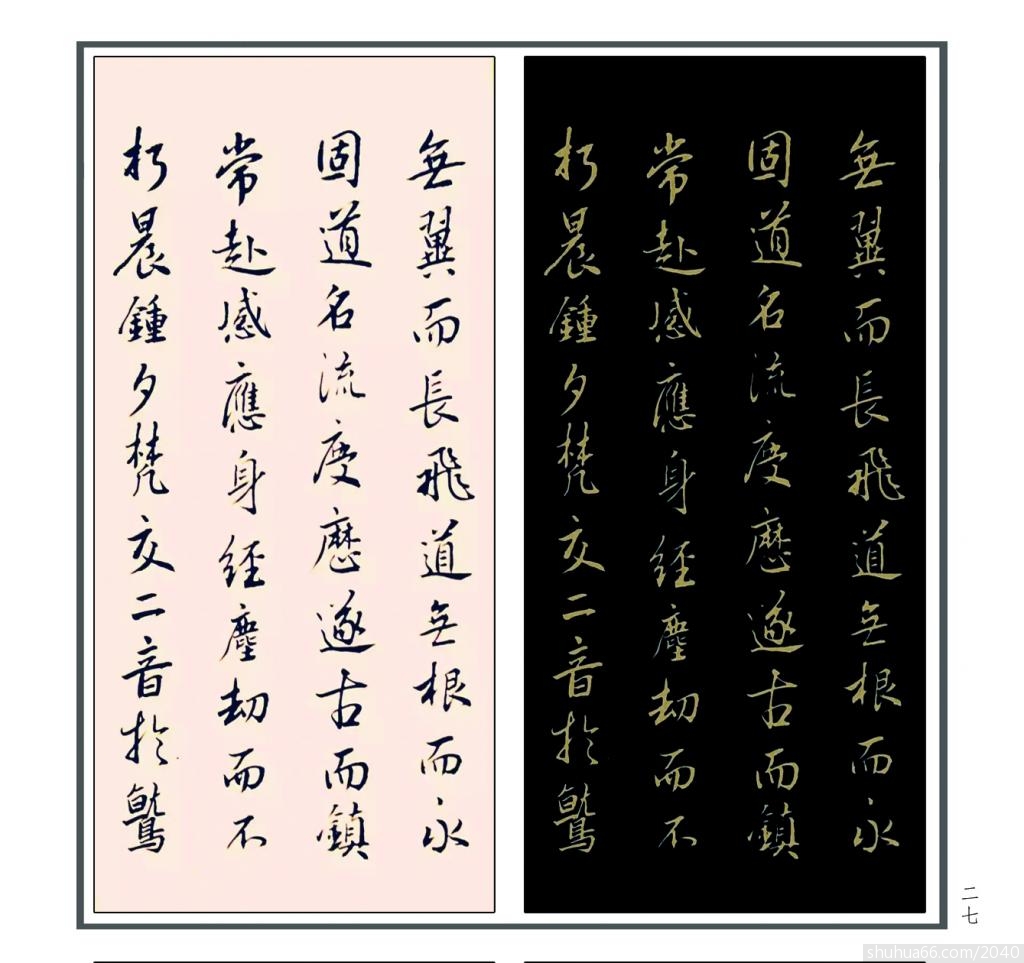 無翼而長飛道無根而永
固道名流慶歷遂古而鎮
常赴感應身經塵劫而不
朽晨鍾夕梵交二音於鷲
無翼而長飛道無根而永
固道名流慶歷遂古而鎮
常赴感應身經塵劫而不
朽晨鍾夕梵交二音於鷲
二七
shuhua66.com/2040